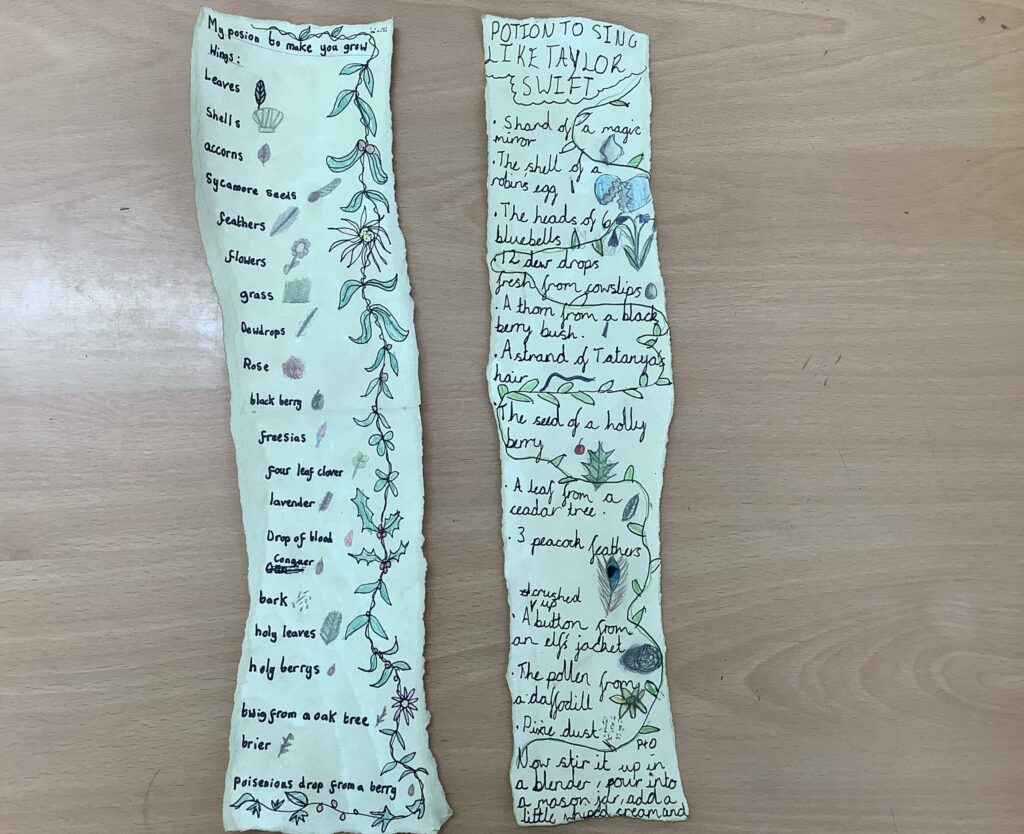 My posion to make you grow
Wings:
Leaves
Shells
acorns
Sycamore seeds
feathers
flowers
grass
Dewdrops
Rose
black berry
freesias
four leaf clover
lavender
Drop of blood
Conquer
bark
holy leaves
holy berrys
twig from a oak tree
brier
poisenious drop from a berry
POTION TO SING
LIKE TAYLOR
SWIFT
• Shard of a magic
mirror
• The shell of a
robin's egg
• The heads of 6
bluebells
• 12 dew drops
fresh from cowslips
• A thorn from a black
berry bush.
• A strand of Tatanya's
hair
• The seed of a holly
berry
• A leaf from a
ceadar tree.
• 3 peacock feathers
crushed
up
• A button from
an elf's jacket
• The pollen from
a daffodill
• Pixie dust
PtO
Now stir it up in
a blender, pour into
a mason jar, add a
little whiped cream and